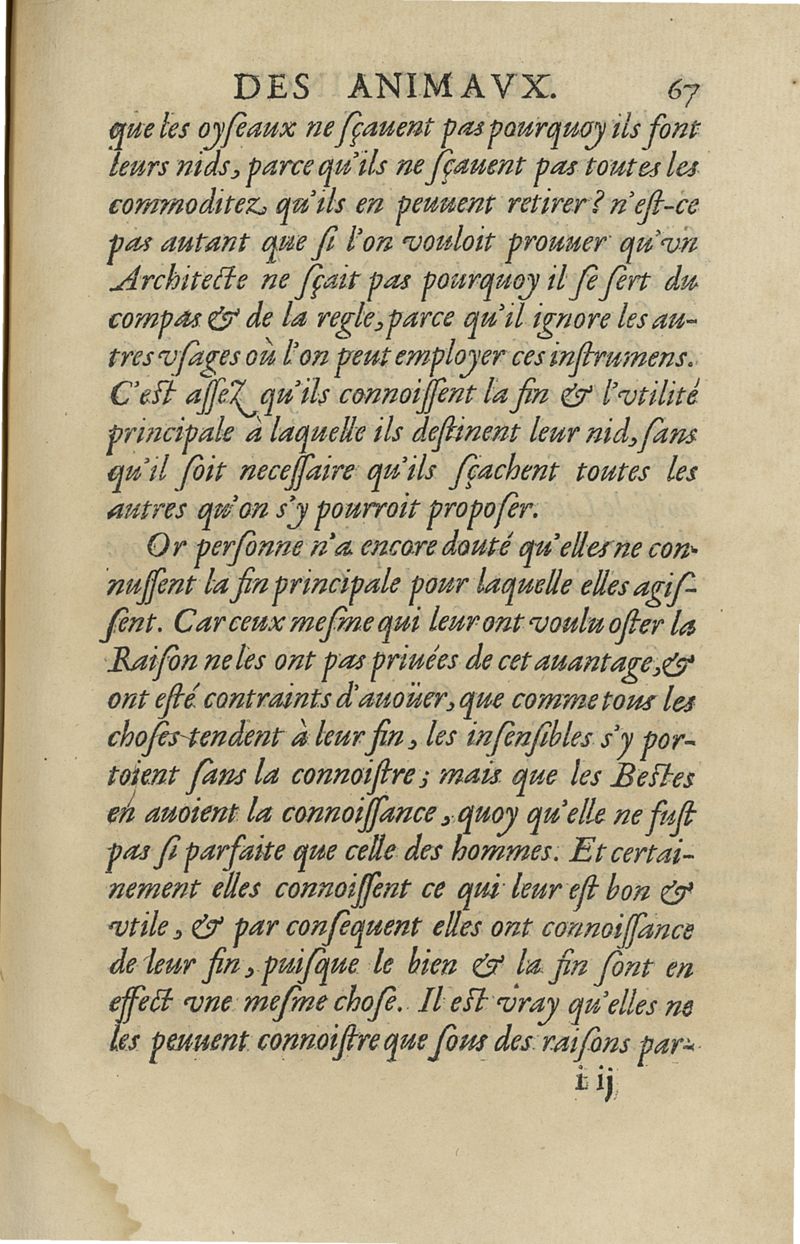 DES ANIMAVX. 67
que les oyſeaux ne ſçauent pas pourquoy ils font
leurs nids, parce qu'ils ne ſçauent pas toutes les
commoditez qu'ils en peuuent retirer? n'eſt-ce
pas autant que ſi l'on vouloit prouuer qu'vn
Architecte ne ſçait pas pourquoy il ſe ſert du
compas & de la regle, parce qu'il ignore les au-
tres vſages où l'on peut employer ces inſtrumens.
C'eſt aſſeZ qu'ils connoiſſent la fin & l'vtilité
principale à laquelle ils deſtinent leur nid, ſans
qu'il ſoit neceſſaire qu'ils ſçachent toutes les
autres qu'on s'y pourroit propoſer.
Or perſonne n'a encore douté qu'elles ne con-
nuſſent la fin principale pour laquelle elles agiſ-
ſent. Car ceux meſme qui leur ont voulu oſter la
Raiſon ne les ont pas priuées de cet auantage, &
ont eſté contraints d'auoüer, que comme tous les
choſes tendent à leur fin, les inſenſibles s'y por-
toient ſans la connoiſtre; mais que les Beſtes
en auoient la connoiſſance, quoy qu'elle ne fuſt
pas ſi parfaite que celle des hommes. Et certai-
nement elles connoiſſent ce qui leur eſt bon &
vtile, & par conſequent elles ont connoiſſance
de leur fin, puiſque le bien & la fin ſont en
effect vne meſme choſe. Il eſt vray qu'elles ne
les peuuent connoiſtre que ſous des raiſons par-
i ij